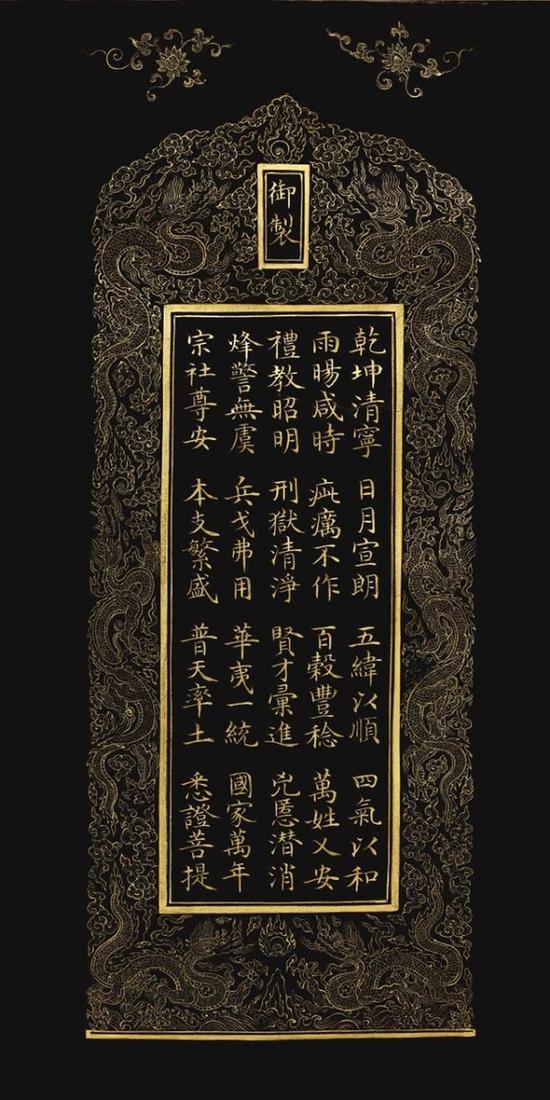 御製
乾坤清寧 日月宣朗 五緯以順 四氣以和
雨暘咸時 疵癘不作 百穀豐稔 萬姓乂安
禮教昭明 刑獄清淨 賢才彙進 兇慝潜消
烽警無虞 兵戈弗用 華夷一統 國家萬年
宗社尊安 本支繁盛 普天率土 悉證菩提